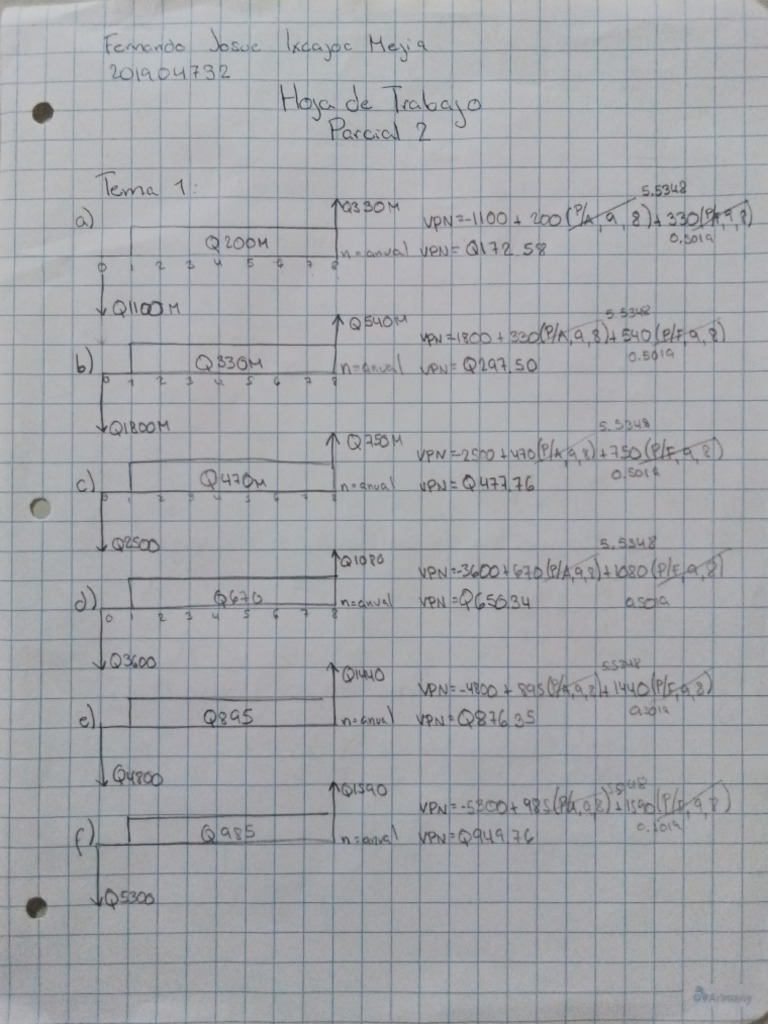 Fernando Josue Ixcajoc Mejia
201904732
Hoja de Trabajo
Parcial 2
Tema 1:
a)
Q330M
Q200M
n=anual
0 1 2 3 4 5 6 7 8
Q1100M
5.5348
VPN=-1100 + 200(P/A, 9, 8)+330(P/A, 9, 8)
0.5019
VPN= Q172.58
b)
Q540M
Q330M
n=anual
0 1 2 3 4 5 6 7 8
Q1800M
5.5348
VPN=1800 + 330(P/A, 9, 8)+540(P/F, 9, 8)
0.5019
VPN= Q297.50
c)
Q750M
Q470M
n=anual
0 1 2 3 4 5 6 7 8
Q2500
5.5348
VPN=-2500 +470(P/A, 9, 8)+750(P/F, 9, 8)
0.5019
VPN= Q477.76
d)
Q1080
Q670
n=anual
0 1 2 3 4 5 6 7 8
Q3600
5.5348
VPN=-3600+670(P/A, 9, 8)+1080(P/F, 9, 8)
0.5019
VPN=Q650.34
e)
Q1440
Q895
n=anual
Q4800
5.5348
VPN=-4800 + 895(P/A, 9, 8)+1440(P/F, 9, 8)
0.5019
VPN=Q876.35
f)
Q1590
Q985
n=anual
Q5300
VPN=-5300+985(P/A, 9, 8)+1590(P/F, 9, 8)
0.5019
VPN=Q949.76